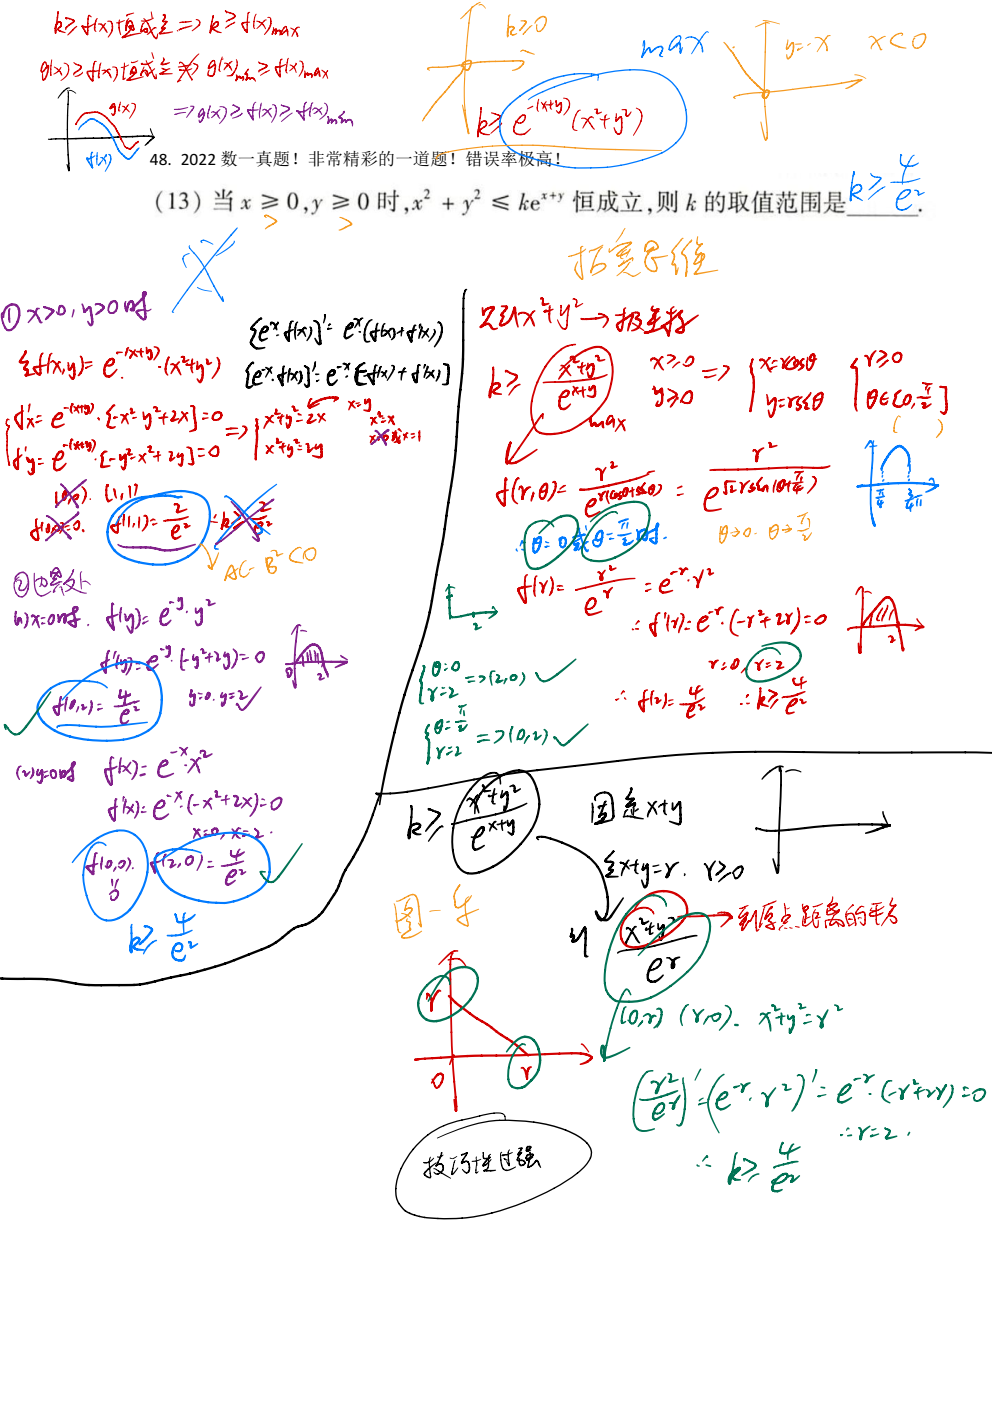 k≥f(x)恒成立=>k≥f(x)max
g(x)≥f(x)恒成立=>g(x)min≥f(x)max
=>g(x)≥f(x)≥f(x)min
g(x)
f(x)
k≥0
max
y=-x x<0
k≥e^{-(x+y)}(x²+y²)
48. 2022 数一真题！非常精彩的一道题！错误率极高！
(13) 当 x ≥ 0, y ≥ 0 时, x² + y² ≤ ke^{x+y} 恒成立, 则 k 的取值范围是 k≥4/e² .
> >
拓宽思维
① x>0, y>0时
[e^x·f(x)]'=e^x·(f(x)+f'(x))
[e^{-x}·f(x)]'=e^{-x}·[-f(x)+f'(x)]
令f(x,y)=e^{-(x+y)}·(x²+y²)
f'x=e^{-(x+y)}·[-x²-y²+2x]=0
f'y=e^{-(x+y)}·[-y²-x²+2y]=0
=> x²+y²=2x
x²+y²=2y
x=y
x²=x
x=0或x=1
(0,0). (1,1)
f(0,0)=0. f(1,1)=2/e² ∴k≥2/e²
AC-B²<0
②边界处
(1)x=0时. f(y)=e^{-y}·y²
f'(y)=e^{-y}·(-y²+2y)=0
y=0. y=2
0 2
f(0,2)=4/e²
(2)y=0时 f(x)=e^{-x}·x²
f'(x)=e^{-x}·(-x²+2x)=0
x=0, x=2.
f(0,0). f(2,0)=4/e²
0
k≥4/e²
见到x²+y²→极坐标
k≥ (x²+y²)/e^{x+y} max
x≥0
y≥0
=> x=rcosθ
y=rsinθ
r≥0
θ∈[0,π/2]
( )
f(r,θ)=r²/e^{r(cosθ+sinθ)}=r²/e^{√2rsin(θ+π/4)}
π/4 3/4π
∴θ=0或θ=π/2时.
θ→0. θ→π/2
f(r)=r²/e^r=e^{-r}·r²
∴f'(r)=e^{-r}·(-r²+2r)=0
r=0, r=2
2
2
∴f(2)=4/e² ∴k≥4/e²
θ=0
r=2 =>(2,0)
θ=π/2
r=2 =>(0,2)
k≥(x²+y²)/e^{x+y}
固定x+y
令x+y=r. r≥0
则 (x²+y²)/e^r →到原点距离的平方
r
0 r
(0,r) (r,0). x²+y²=r²
(r²/e^r)'=(e^{-r}·r²)'=e^{-r}·(-r²+2r)=0
∴r=2.
∴k≥4/e²
技巧性过强